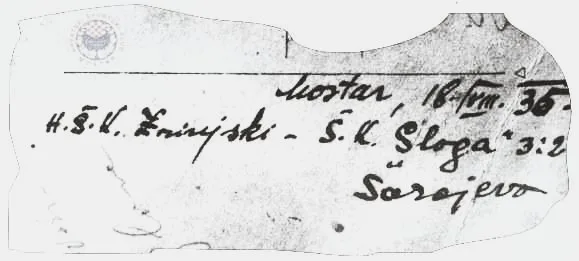 Mostar, 18. VIII. 36.
H.Š.K. Zrinjski - Š.K. „Sloga" 3:2
Sarajevo